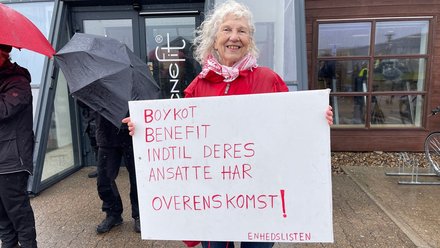 benefit®
BOYKOT
BENEFIT
INDTIL DERES
ANSATTE HAR
OVERENSKOMST!
ENHEDSLISTEN